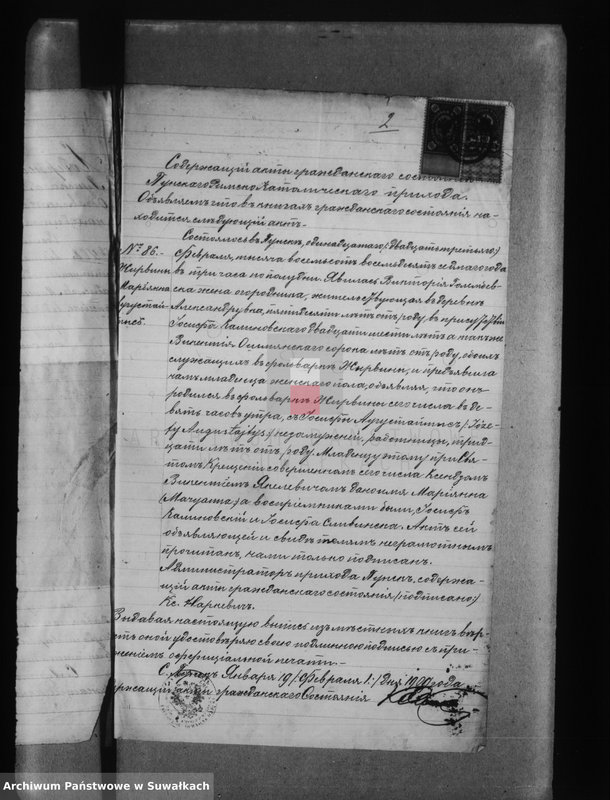 2
Содержащій акты гражданскаго состоянія
Пунскаго Римско Католическаго прихода.
Объявляемъ что въ книгахъ гражданскаго состоянія на-
ходится слѣдующій актъ
Состоялось въ Пунскѣ, одинадцатаго (двадцать третьяго)
№ 86. Февраля, тысяча восемьсотъ восемьдесятъ седьмаго года
Жирвины въ три часа по полудни. Явилась Викторія
Маріянна ска жена огородника, жительствующая въ деревнѣ
Александрувка, пятидесяти лѣтъ отъ роду, въ присутствіи
Іосифа Калиновскаго двадцати шести лѣтъ а также
Викентія сорока лѣтъ отъ роду, обоихъ
служащихъ въ фольваркѣ Жирвины, и предъявила
намъ младенца женскаго пола, объявляя, что онъ
родился въ фольваркѣ Жирвины сего числа въ де-
вять часовъ утра, съ Іосифы Аугустайтисъ /Józe-
fy Augustajtys/ незамужней, работницы, трид-
цати лѣтъ отъ роду. Младенцу этому при Свя-
томъ Крещеніи совершенномъ сего числа Ксендзомъ
Викентіемъ Якелевичемъ дано имя Маріянна
(Maryanna), а воспріемниками были, Іосифъ
Калиновскій и Іосифа Сливинска. Актъ сей
объявляющей и свидѣтелямъ неграмотнымъ
прочитанъ, нами только подписанъ.
Администраторъ прихода Пунскъ, содержа-
щій акты гражданскаго состоянія (подписано:)
Кс. Наркевичъ.
Выдавая настоящую выпись изъ мѣстныхъ книгъ вѣр-
ность оной удостовѣряю своею подлинною подписью съ при-
ложеніемъ оффиціальной печати.
С. Пунскъ Января 19 / Февраля 1 / дня 1900 года
Содержащій акты гражданскаго Состоянія
Archiwum Państwowe w Suwałkach